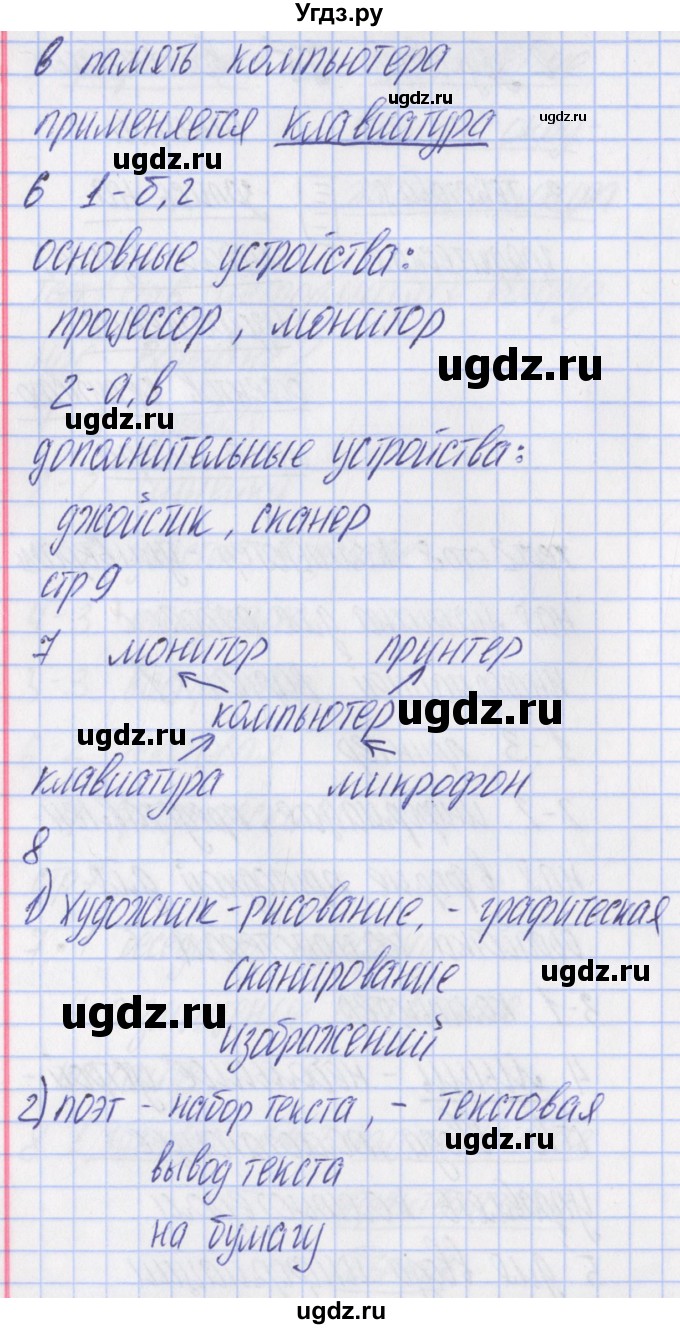 Угдз.ру
в память компьютера
ugdz.ru
ugdz.ru
применяется клавиатура
ugdz.ru
6 1-б,г
основные устройства:
процессор, монитор
ugdz.ru
2-а,в
ugdz.ru
дополнительные устройства:
джойстик, сканер
стр 9
7 монитор принтер
компьютер ugdz.ru
ugdz.ru
клавиатура микрофон
8
1) художник-рисование, - графическая
сканирование ugdz.ru
ugdz.ru
изображений
2) поэт - набор текста, - текстовая
ugdz.ru
вывод текста
на бумагу
ugdz.ru